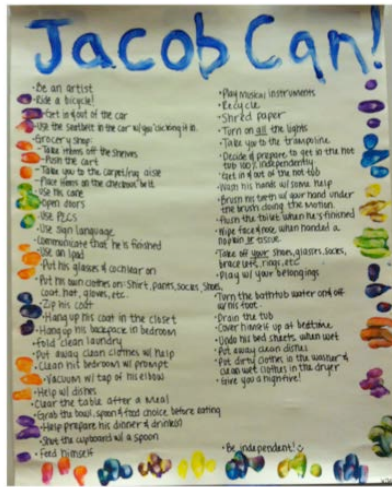 Jacob Can!
·Be an artist
·Ride a bicycle!
·Get in & out of the car
·Use the seatbelt in the car w/ you clicking it in.
·Grocery shop:
-Take items off the shelves
-Push the cart
-Take you to the carpeting aisle
-Place items on the checkout belt
·Use his cane
·Open doors
·Use PECS
·Use sign language
·Communicate that he is finished
·Use an ipad
·Put his glasses & cochlear on
·Put his own clothes on: Shirt, pants, socks, shoes,
coat, hat, gloves, etc.
·Zip his coat
·Hang up his coat in the closet
·Hang up his backpack in bedroom
·Fold clean laundry
·Put away clean clothes w/ help
·Clean his bedroom w/ prompt
·Vacuum w/ tap of his elbow
·Help w/ dishes
·Clear the table after a meal
·Grab the bowl, spoon & food choice before eating
·Help prepare his dinner & drink(s)
·Shut the cupboard w/ a spoon
·Feed himself
·Play musical instruments
·Recycle
·Shred paper
·Turn on all the lights
·Take you to the trampoline
·Decide & prepare to get in the hot
tub 100% independently
·Get in & out of the hot tub
·Wash his hands w/ some help
·Brush his teeth w/ your hand under
the brush doing the motion.
·Flush the toilet when he's finished
·Wipe face & nose when handed a
napkin or tissue.
·Take off your shoes, glasses, socks,
bracelets, rings, etc
·Play w/ your belongings
·Turn the bathtub water on & off
w/ his foot.
·Drain the tub
·Cover himself up at bedtime
·Undo his bed sheets when wet
·Put away clean dishes
·Put dirty clothes in the washer &
clean wet clothes in the dryer
·Give you a high five!
·Be independent! :)